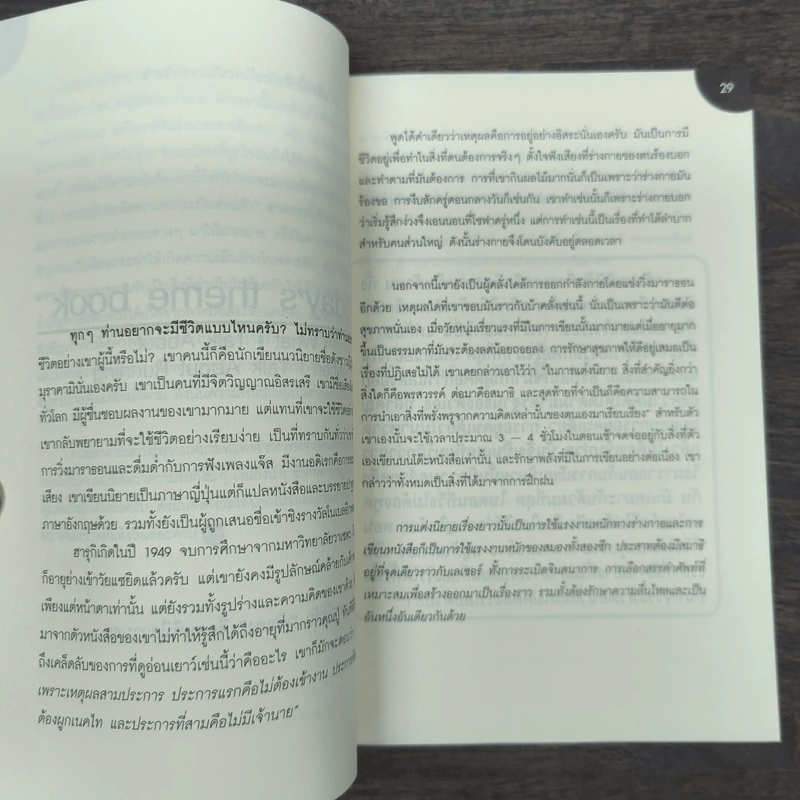 ทุกๆ ท่านอยากจะมีชีวิตแบบไหนครับ? ไม่ทราบว่าท่าน
ชีวิตอย่างเขาผู้นี้หรือไม่? เขาคนนี้ก็คือนักเขียนนวนิยายชื่อดัง
มุราคามินั่นเองครับ เขาเป็นคนที่มีจิตวิญญาณอิสรเสรี เขามีชื่อ
ทั่วโลก มีผู้ชื่นชอบผลงานของเขามากมาย แต่แทนที่เขาจะใช้ชีวิต
เขากลับพยายามที่จะใช้ชีวิตอย่างเรียบง่าย เป็นที่ทราบกันทั่ว
การวิ่งมาราธอนและดื่มด่ำกับการฟังเพลงแจ๊ส มีงานอดิเรกคือการ
เสียง เขาเขียนนิยายเป็นภาษาญี่ปุ่นแต่ก็แปลหนังสือและบรรยาย
ภาษาอังกฤษด้วย รวมทั้งยังเป็นผู้ถูกเสนอชื่อเข้าชิงรางวัลโนเบล
ฮารุกิเกิดในปี 1949 จบการศึกษาจากมหาวิทยาลัยวาเซดะ
ก็อายุย่างเข้าวัยแซยิดแล้วครับ แต่เขายังคงมีรูปลักษณ์คล้ายกับ
เพียงแต่หน้าตาเท่านั้น แต่ยังรวมทั้งรูปร่างและความคิดของเขาด้วย
มาจากตัวหนังสือของเขาไม่ทำให้รู้สึกได้ถึงอายุที่มากราวคุณปู่
ถึงเคล็ดลับของการที่ดูอ่อนเยาว์เช่นนี้ว่าคืออะไร เขาก็มักจะ
เพราะเหตุผลสามประการ ประการแรกคือไม่ต้องเข้างาน
ต้องผูกเนคไท และประการที่สามคือไม่มีเจ้านาย”
29
พูดได้คำเดียวว่าเหตุผลคือการอยู่อย่างอิสระนั่นเองครับ มันเป็นการมี
ชีวิตอยู่เพื่อทำในสิ่งที่ตนต้องการจริงๆ ตั้งใจฟังเสียงที่ร่างกายของตนร้องบอก
และทำตามที่มันต้องการ การที่เขากินผลไม้มากนั่นก็เป็นเพราะว่าร่างกายมัน
ร้องขอ การงีบสักครู่ตอนกลางวันก็เช่นกัน เขาทำเช่นนั้นก็เพราะร่างกายบอก
ว่าเริ่มรู้สึกง่วงจึงเอนนอนที่โซฟาครู่หนึ่ง แต่การทำเช่นนี้เป็นเรื่องที่ทำได้ลำบาก
สำหรับคนส่วนใหญ่ ดังนั้นร่างกายจึงโดนบังคับอยู่ตลอดเวลา
นอกจากนี้เขายังเป็นผู้คลั่งไคล้การออกกำลังกายโดยแข่งวิ่งมาราธอน
อีกด้วย เหตุผลใดที่เขาชอบมันราวกับบ้าคลั่งเช่นนี้ นั่นเป็นเพราะว่ามันดีต่อ
สุขภาพนั่นเอง เมื่อวัยหนุ่มเรี่ยวแรงที่มีในการเขียนนั้นมากมายแต่เมื่ออายุมาก
ขึ้นเป็นธรรมดาที่มันจะต้องลดน้อยถอยลง การรักษาสุขภาพให้ดีอยู่เสมอเป็น
เรื่องที่ปฏิเสธไม่ได้ เขาเคยกล่าวเอาไว้ว่า “ในการแต่งนิยาย สิ่งที่สำคัญยิ่งกว่า
สิ่งใดก็คือพรสวรรค์ ต่อมาคือสมาธิ และสุดท้ายที่จำเป็นก็คือความสามารถใน
การนำเอาสิ่งที่พรั่งพรูจากความคิดเหล่านั้นของตนเองมาเรียบเรียง” สำหรับตัว
เขาเองนั้นจะใช้เวลาประมาณ 3 – 4 ชั่วโมงในตอนเช้าจดจ่ออยู่กับสิ่งที่ตัว
เองเขียนบนโต๊ะหนังสือเท่านั้น และรักษาพลังที่มีในการเขียนอย่างต่อเนื่อง เขา
กล่าวว่าทั้งหมดเป็นสิ่งที่ได้มาจากการฝึกฝน
การแต่งนิยายเรื่องยาวนั้นเป็นการใช้แรงงานหนักทางร่างกายและการ
เขียนหนังสือก็เป็นการใช้แรงงานหนักของสมองทั้งสองซีก ประสาทต้องมีสมาธิ
อยู่ที่จุดเดียวราวกับเลเซอร์ ทั้งการระเบิดจินตนาการ การเลือกสรรคำศัพท์ที่
เหมาะสมเพื่อสร้างออกมาเป็นเรื่องราว รวมทั้งต้องรักษาความลื่นไหลและเป็น
อันหนึ่งอันเดียวกันด้วย